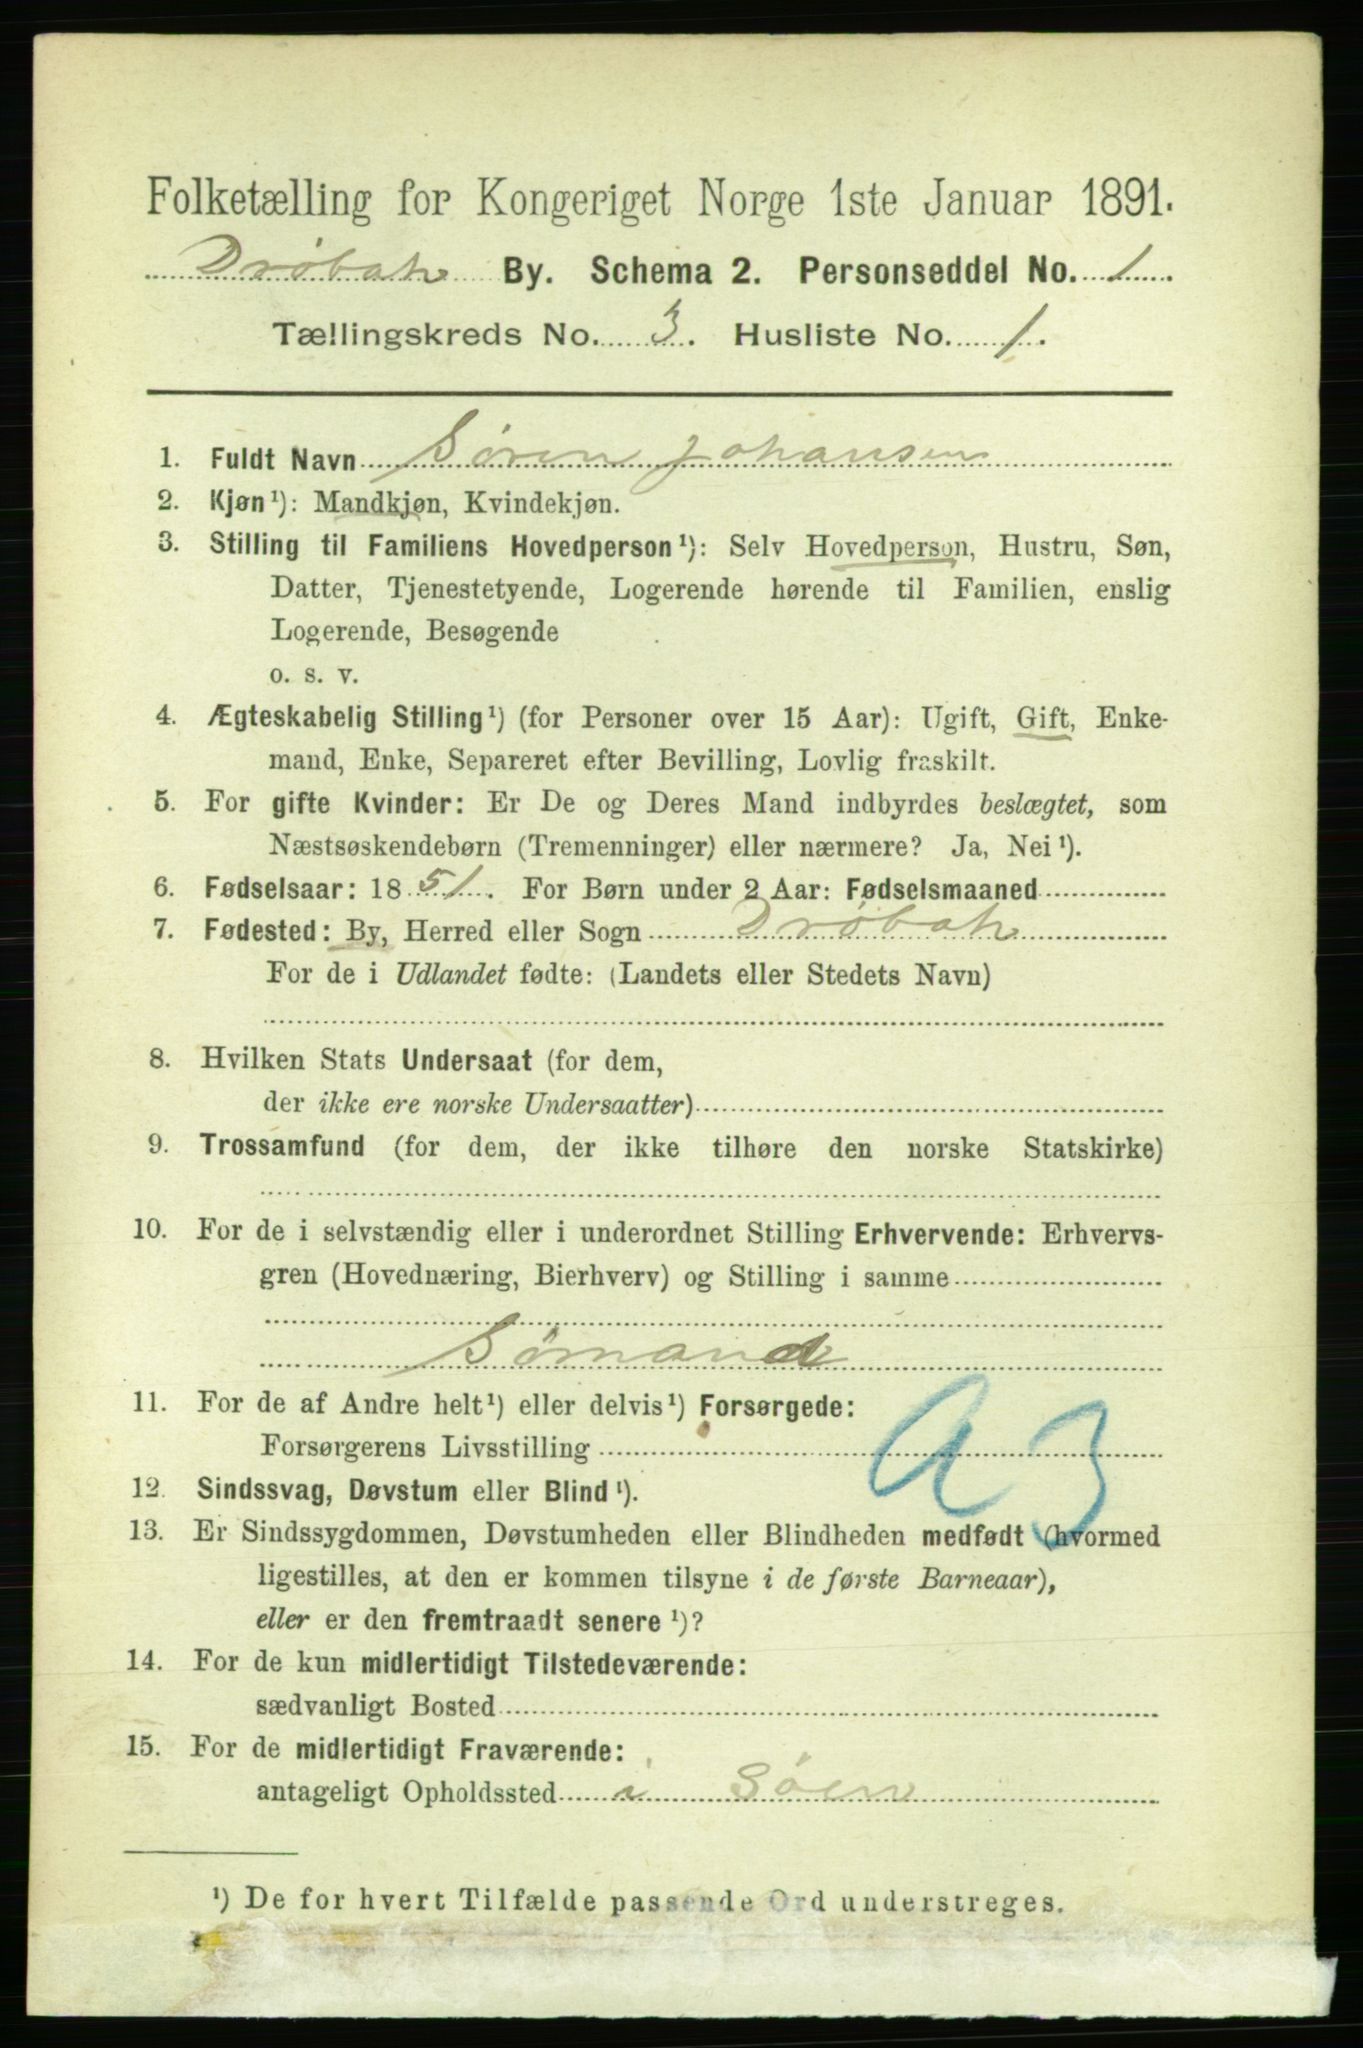 Folketælling for Kongeriget Norge 1ste Januar 1891.
Drøbak By. Schema 2. Personseddel No. 1.
Tællingskreds No. 3. Husliste No. 1.
1. Fuldt Navn Søren Johansen
2. Kjøn¹): Mandkjøn, Kvindekjøn.
3. Stilling til Familiens Hovedperson¹): Selv Hovedperson, Hustru, Søn,
Datter, Tjenestetyende, Logerende hørende til Familien, enslig
Logerende, Besøgende
o. s. v.
4. Ægteskabelig Stilling¹) (for Personer over 15 Aar): Ugift, Gift, Enke-
mand, Enke, Separeret efter Bevilling, Lovlig fraskilt.
5. For gifte Kvinder: Er De og Deres Mand indbyrdes beslægtet, som
Næstsøskendebørn (Tremenninger) eller nærmere? Ja, Nei¹).
6. Fødselsaar: 1851. For Børn under 2 Aar: Fødselsmaaned
7. Fødested: By, Herred eller Sogn Drøbak
For de i Udlandet fødte: (Landets eller Stedets Navn)
8. Hvilken Stats Undersaat (for dem,
der ikke ere norske Undersaatter)
9. Trossamfund (for dem, der ikke tilhøre den norske Statskirke)
10. For de i selvstændig eller i underordnet Stilling Erhvervende: Erhvervs-
gren (Hovednæring, Bierhverv) og Stilling i samme
Sømand
11. For de af Andre helt¹) eller delvis¹) Forsørgede:
Forsørgerens Livsstilling
a 3
12. Sindssvag, Døvstum eller Blind¹).
13. Er Sindssygdommen, Døvstumheden eller Blindheden medfødt (hvormed
ligestilles, at den er kommen tilsyne i de første Barneaar),
eller er den fremtraadt senere¹)?
14. For de kun midlertidigt Tilstedeværende:
sædvanligt Bosted
15. For de midlertidigt Fraværende:
antageligt Opholdssted i Søen
¹) De for hvert Tilfælde passende Ord understreges.